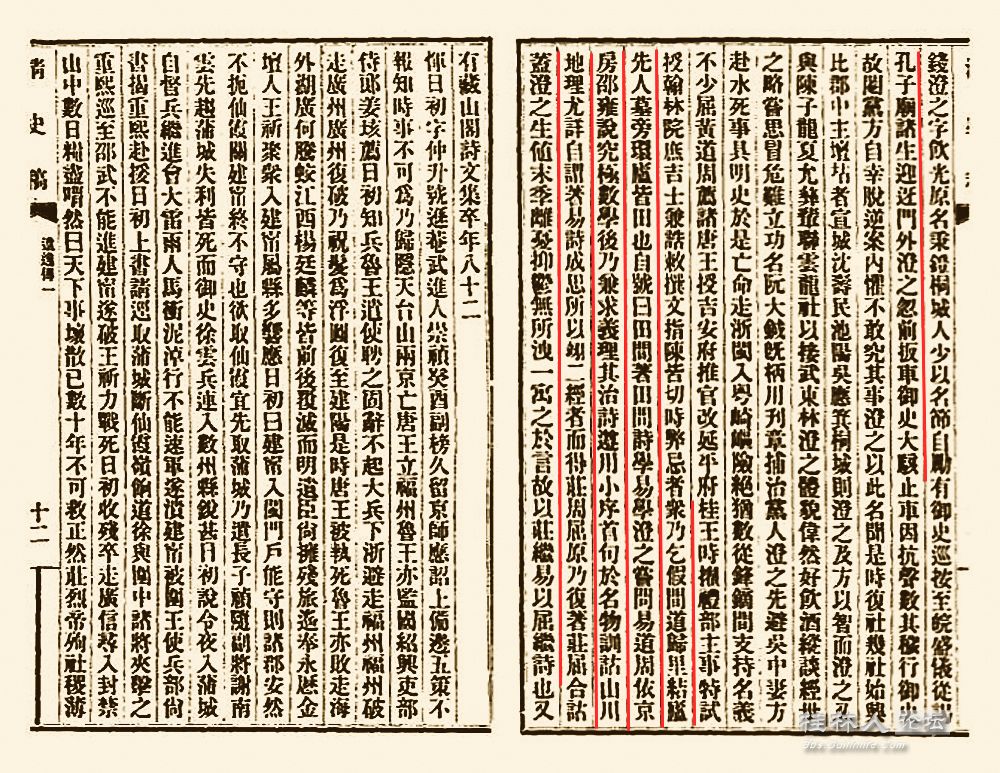 錢澄之字飲光原名秉鐙桐城人少以名節自勵有御史巡按至皖盛儀從謁
孔子廟諸生迎迓門外澄之忽前扳車御史大駭止車因抗聲數其穢行御史
故閹黨方自幸脫逆案內懼不敢究其事澄之以此名聞是時復社幾社始興
比郡中主壇坫者宣城沈壽民池陽吳應箕桐城則澄之及方以智而澄之又
與陳子龍夏允彝輩聯雲龍社以接武東林澄之體貌偉然好飲酒縱談經世
之略嘗思冒危難立功名阮大鋮既柄用刊章捕治黨人澄之先避吳中妻方
赴水死事具明史於是亡命走浙閩入粵崎嶇險絕猶數從鋒鏑間支持名義
不少屈黃道周薦諸唐王授吉安府推官改延平府桂王時擢禮部主事特試
授翰林院庶吉士兼誥敕撰文指陳皆切時弊忌者衆乃乞假間道歸里結廬
先人墓旁環廬皆田也自號曰田間著田間詩學易學澄之嘗問易道周依京
房邵雍說究極數學後乃兼求義理其治詩遵用小序首句於名物訓詁山川
地理尤詳自謂著易詩成思所以翊二經者而得莊周屈原乃復著莊屈合詁
蓋澄之生値末季離憂抑鬱無所洩一寓之於言故以莊繼易以屈繼詩也又
有藏山閣詩文集卒年八十二
惲日初字仲升號遜菴武進人崇禎癸酉副榜久留京師應詔上備邊五策不
報知時事不可爲乃歸隱天台山兩京亡唐王立福州魯王亦監國紹興吏部
侍郎姜垓薦日初知兵魯王遣使聘之固辭不起大兵下浙避走福州福州破
走廣州廣州復破乃祝髮爲浮圖復至建陽是時唐王被執死魯王亦敗走海
外湖廣何騰蛟江西楊廷麟等皆前後覆滅而明遺臣尚擁殘旅遙奉永曆金
壇人王祈聚衆入建甯屬縣多響應日初曰建甯入閩門戶能守則諸郡安然
不扼仙霞關建甯終不守也欲取仙霞宜先取蒲城乃遣長子禎隨副將謝南
雲先趨蒲城失利皆死而御史徐雲兵連入數州縣銳甚日初說令夜入蒲城
自督兵繼進會大雷雨人馬衝泥淖行不能速軍遂潰建甯被圍王使兵部尙
書揭重熙赴援日初上書請逕取蒲城斷仙霞嶺餉道徐與圍中諸將夾擊之
重熙巡至邵武不能進建甯遂破王祈力戰死日初收殘卒走廣信尋入封禁
山中數日糧盡喟然曰天下事壞散已數十年不可救正然莊烈帝殉社稷薄
清史稿
遺逸傳一
十二
桂林人论坛
bbs.guilinlife.com